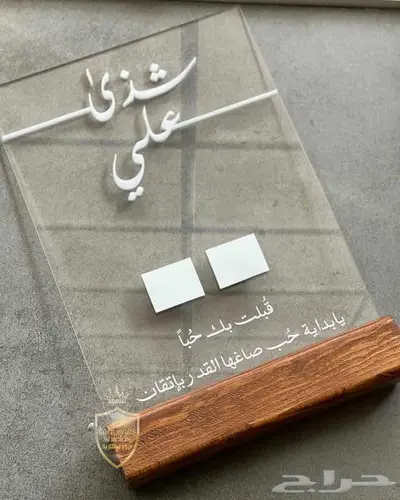 شذى
علي
قُبلت بك حُباً
يابداية حُب صاغها القدر بإتقان
حراج